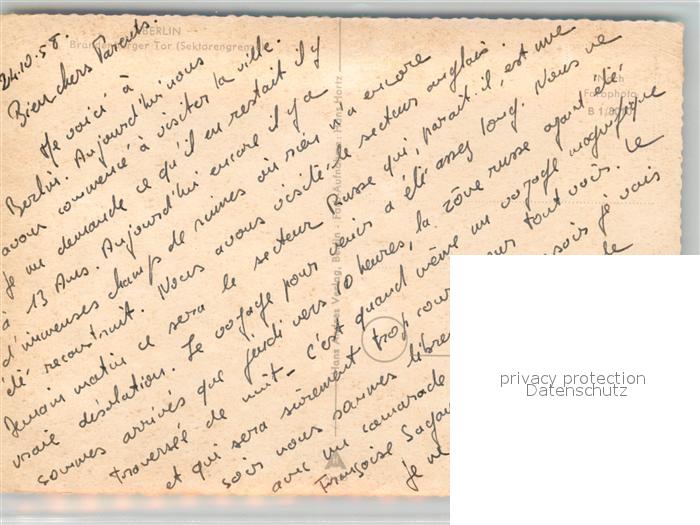 BERLIN
Brandenburger Tor (Sektorengrenze)
24.10.58.
Bien chers Parents.
Me voici à
Berlin. Aujourd'hui nous
avons commencé à visiter la ville.
Je me demande ce qu'il en restait il y
à 13 Ans. Aujourd'hui encore il y a
d'immenses champs de ruines où rien n'a encore
été reconstruit. Nous avons visité le secteur anglais.
Demain matin ce sera le secteur Russe qui, parait il, est une
vraie désolation. Le voyage pour venir a été assez long. Nous ne
sommes arrivés que jeudi vers 10 heures, la zône russe ayant été
traversée de nuit - C'est quand même un voyage magnifique
et qui sera sûrement trop court pour tout voir. Le
soir nous sommes libres soir je vais
avec un camarade de
Françoise Sagan
Je
Hans Andres Verlag, Berlin - Foto-Aufnahme: Hans Hartz
Nach
Fotophoto
B 1/
privacy protection
Datenschutz